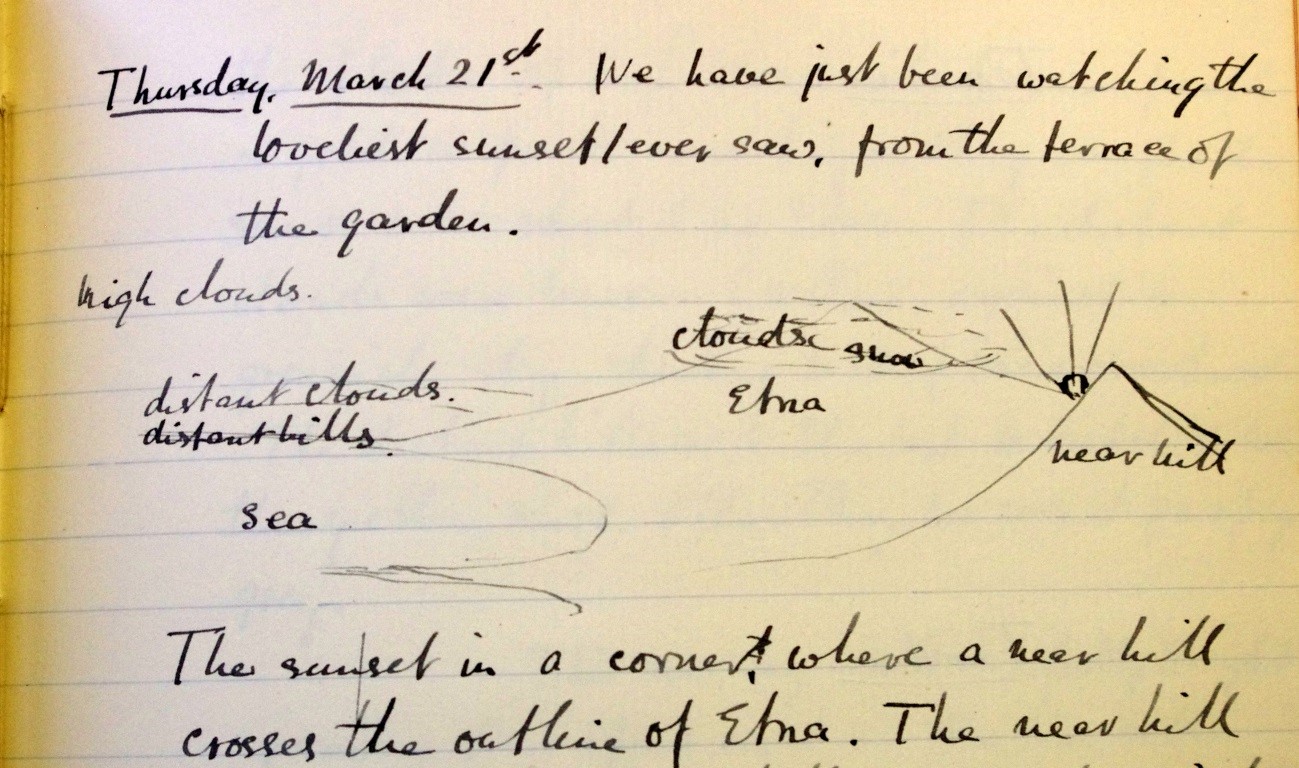 Thursday, March 21st. We have just been watching the
loveliest sunset I ever saw, from the terrace of
the garden.
high clouds.
clouds
snow
distant clouds.
Etna
distant hills.
near hill
sea
The sun set in a corner, where a near hill
crosses the outline of Etna. The near hill